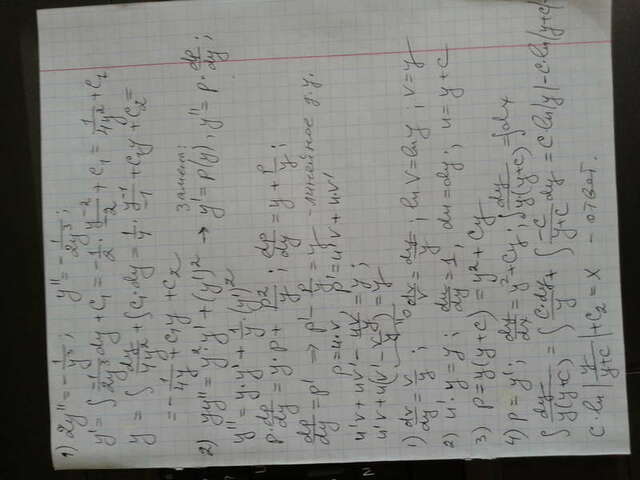 1) 2y'' = -1/y³; y'' = -1/2y³;
y' = ∫ -1/2y³ dy + C₁ = -1/2 · y⁻²/-2 + C₁ = 1/4y² + C₁
y = ∫ dy/4y² + ∫ C₁ · dy = 1/4 · y⁻¹/-1 + C₁y + C₂ =
= -1/4y + C₁y + C₂
2) yy'' = y²y' + (y')² → y' = P(y); y'' = P · dp/dy;
y'' = y · y' + 1/y (y')²
P dp/dy = y · P + P²/y; dp/dy = y + P/y;
dp/dy = P' → P' - P/y = y - линейное д.у.
P = u · v P' = u'v + uv'
u'v + uv' - uv/y = y;
u'v + u(v' - v/y) = y
0
1) dv/dy = v/y; dv/v = dy/y; ln v = ln y; v = y
2) u' · y = y; du/dy = 1; du = dy; u = y + C
3) P = y(y + C) = y² + Cy
4) P = y'; dy/dx = y² + Cy; ∫ dy/y(y+C) = ∫ dx
∫ dy/y(y+C) = ∫ C dy/y + ∫ -C/y+C dy = C ln|y| - C · ln|y+C|
C · ln|y/y+C| + C₂ = x - ответ.